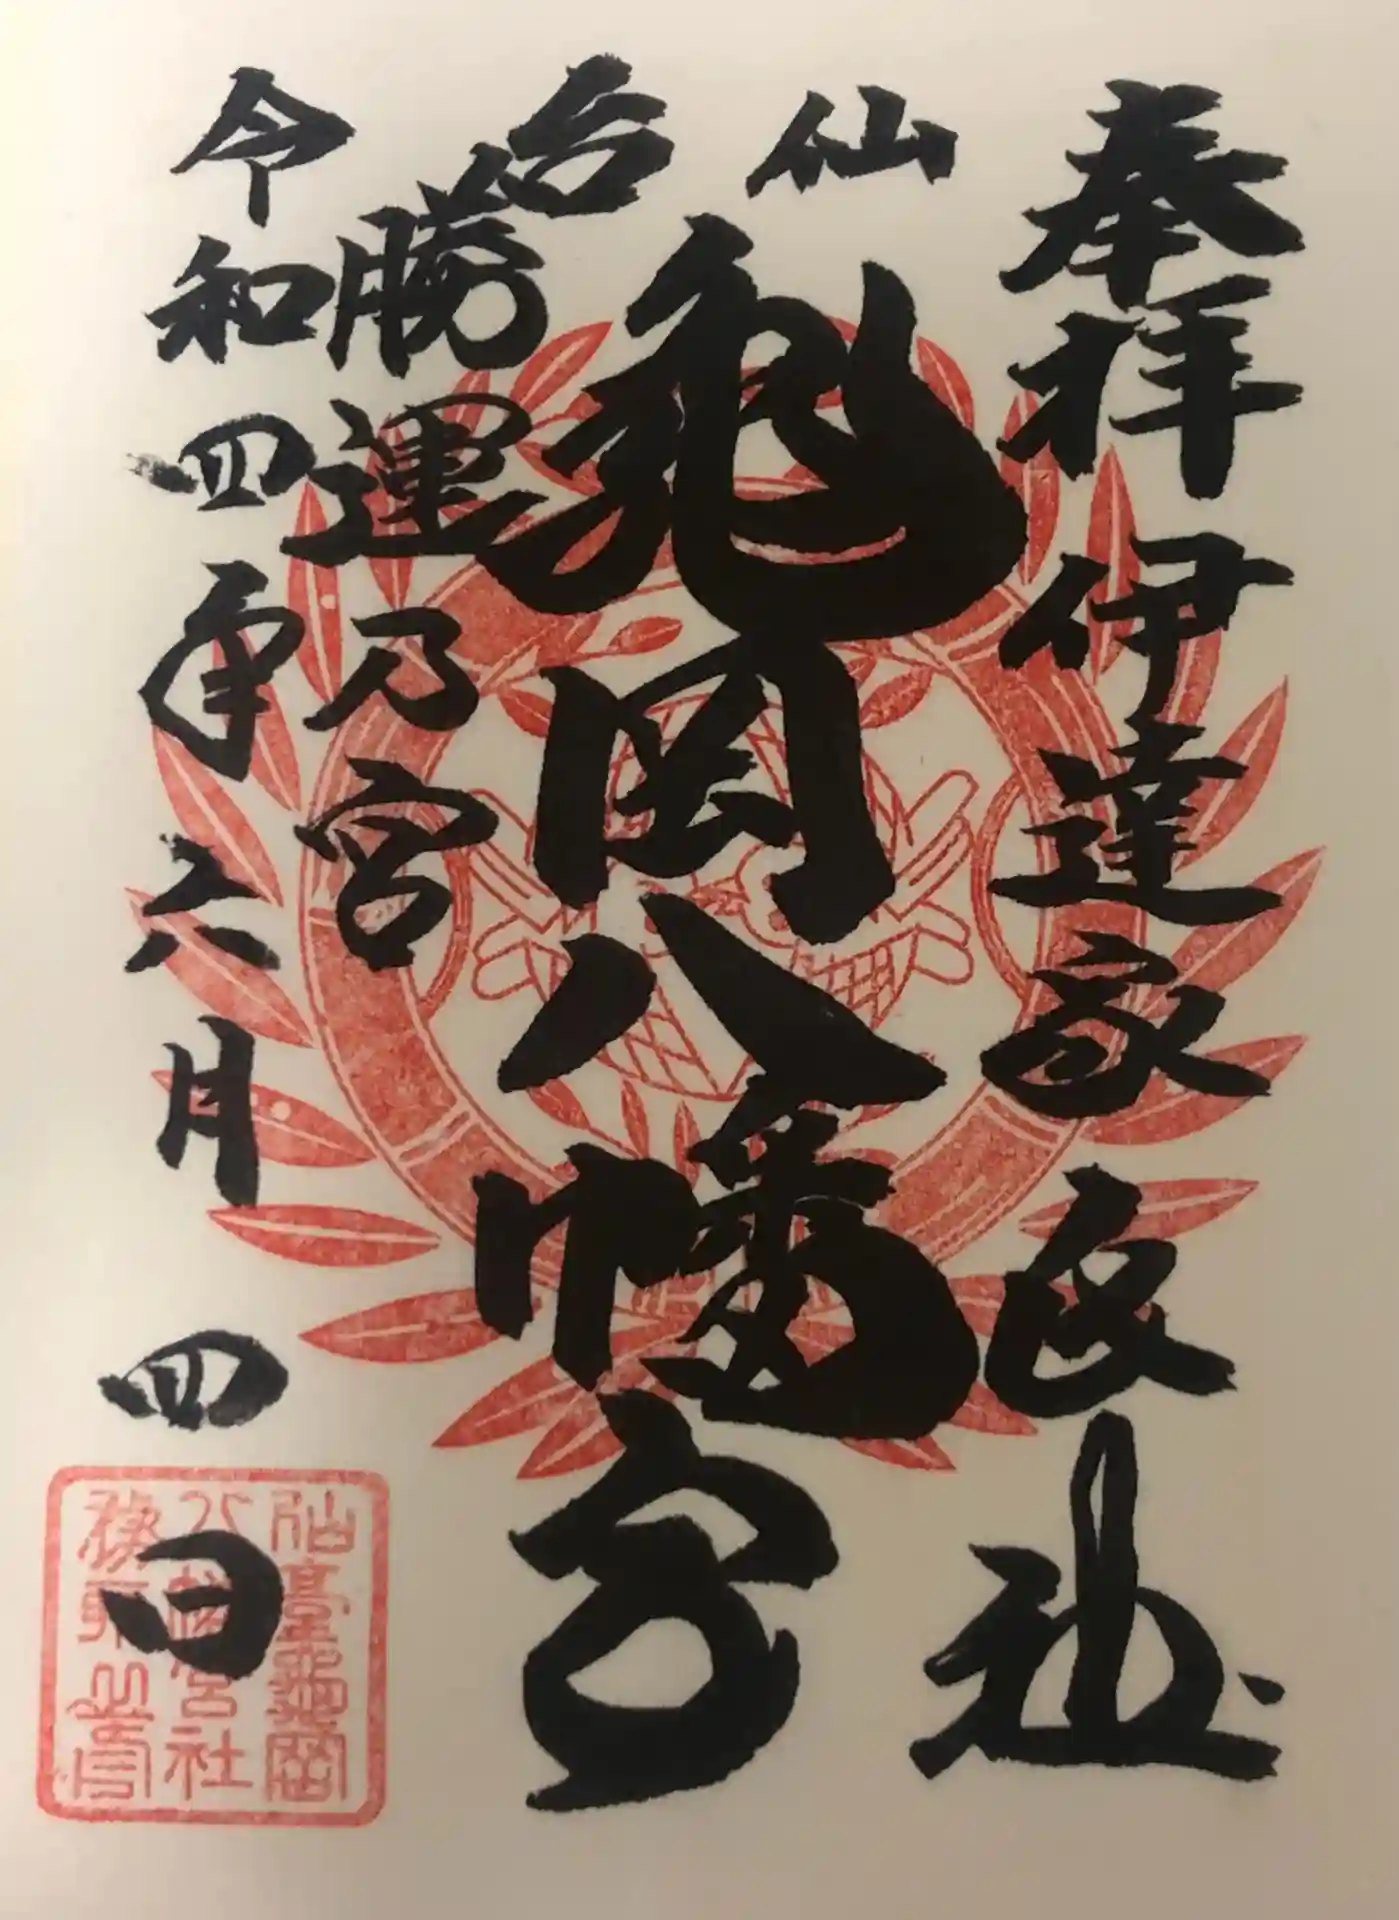 奉拝 伊達家氏社
仙台
亀岡八幡宮
勝運乃宮
令和四年六月四日
仙臺龜岡
八幡宮社
務所之